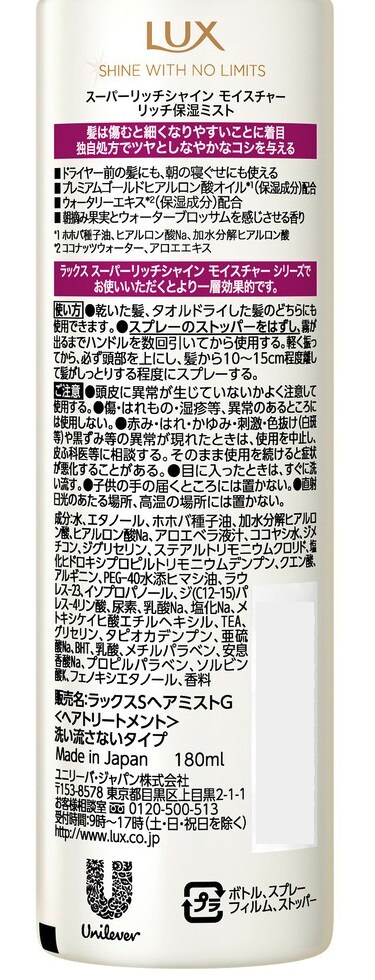 LUX
SHINE WITH NO LIMITS
スーパーリッチシャイン モイスチャー
リッチ保湿ミスト
髪は傷むと細くなりやすいことに着目
独自処方でツヤとしなやかなコシを与える
■ドライヤー前の髪にも、朝の寝ぐせにも使える
■プレミアムゴールドヒアルロン酸オイル*1(保湿成分)配合
■ウォータリーエキス*2(保湿成分)配合
■朝摘み果実とウォーターブロッサムを感じさせる香り
*1 ホホバ種子油、ヒアルロン酸Na、加水分解ヒアルロン酸
*2 ココナッツウォーター、アロエエキス
ラックス スーパーリッチシャイン モイスチャー シリーズで
お使いいただくとより一層効果的です。
使い方 ●乾いた髪、タオルドライした髪のどちらにも
使用できます。●スプレーのストッパーをはずし、霧が
出るまでハンドルを数回引いてから使用する。軽く振っ
てから、必ず頭部を上にし、髪から10〜15cm程度離し
て髪がしっとりする程度にスプレーする。
ご注意 ●頭皮に異常が生じていないかよく注意して
使用する。●傷・はれもの・湿疹等、異常のあるところに
は使用しない。●赤み・はれ・かゆみ・刺激・色抜け(白斑
等)や黒ずみ等の異常が現れたときは、使用を中止し、
皮ふ科医等に相談する。そのまま使用を続けると症状
が悪化することがある。●目に入ったときは、すぐに洗
い流す。●子供の手の届くところには置かない。●直射
日光のあたる場所、高温の場所には置かない。
成分:水、エタノール、ホホバ種子油、加水分解ヒアルロ
ン酸、ヒアルロン酸Na、アロエベラ液汁、ココヤシ水、ジメ
チコン、ジグリセリン、ステアルトリモニウムクロリド、塩
化ヒドロキシプロピルトリモニウムデンプン、クエン酸、
アルギニン、PEG-40水添ヒマシ油、ラウ
レス-23、イソプロパノール、ジ(C12-15)パ
レス-4リン酸、尿素、乳酸Na、塩化Na、メ
トキシケイヒ酸エチルヘキシル、TEA、
グリセリン、タピオカデンプン、亜硫
酸Na、BHT、乳酸、メチルパラベン、安息
香酸Na、プロピルパラベン、ソルビン
酸K、フェノキシエタノール、香料
販売名:ラックスSヘアミストG
<ヘアトリートメント>
洗い流さないタイプ
Made in Japan 180ml
ユニリーバ・ジャパン株式会社
〒153-8578 東京都目黒区上目黒2-1-1
お客様相談室 0120-500-513
受付時間:9時〜17時(土・日・祝日を除く)
http://www.lux.co.jp
Unilever
プラ
ボトル、スプレー
フィルム、ストッパー